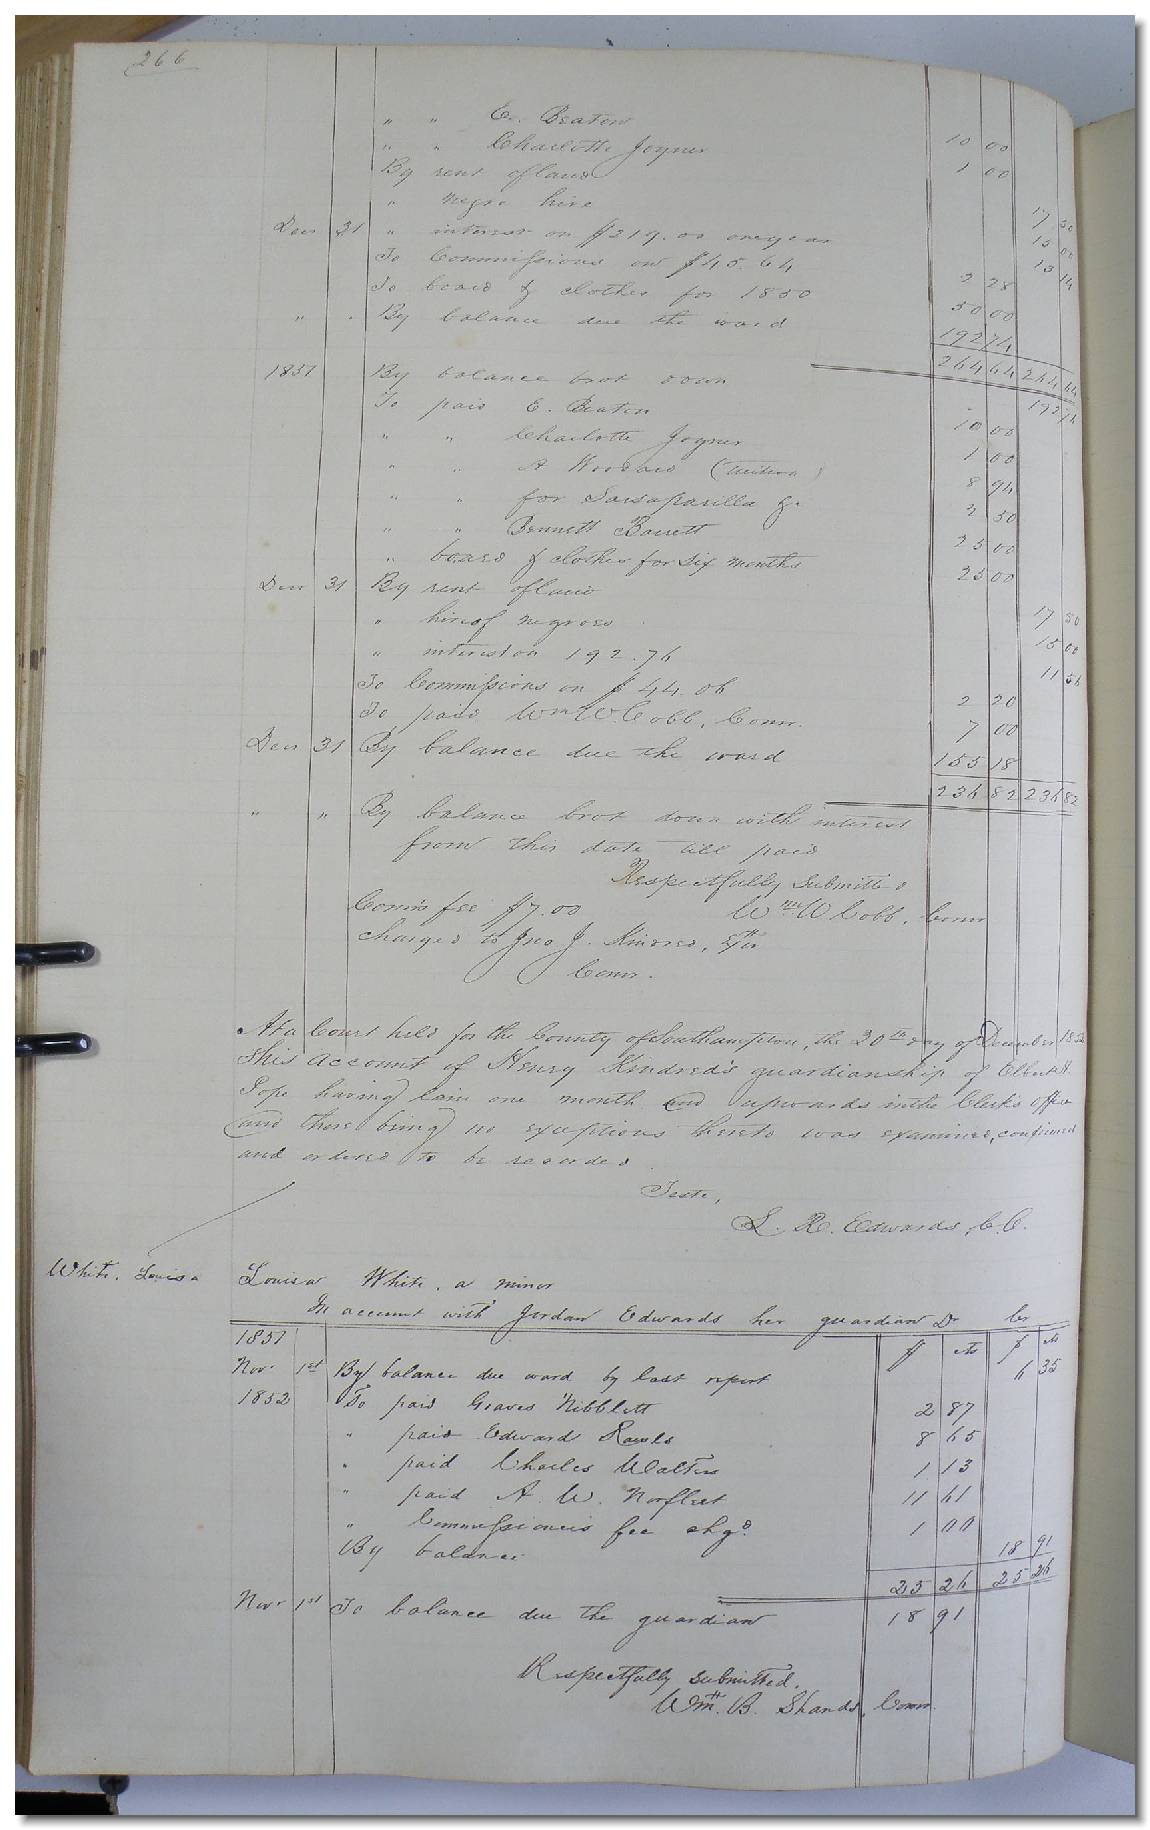 266
" " E. Beaton 10 00
" " Charlotte Joyner 1 00
By rent of land 17 50
" negro hire 15 00
Decr 31 " interest on $219.00 one year 13 14
To Commissions on $45.64 2 28
To board & clothes for 1850 50 00
" " By balance due the ward 192 74
264 64 264 64
1851 By balance brot down 192 76
To paid E. Beaton 10 00
" " Charlotte Joyner 1 00
" " A Woodard (tuition) 8 94
" " for Sarsaparilla &c 2 50
" " Bennett Barrett 25 00
" board & clothes for six months 25 00
Decr 31 By rent of land 17 50
" hire of negroes 15 00
" interest on 192.76 11 56
To Commissions on $44.06 2 20
To paid Wm W. Cobb, Comr. 7 00
Decr 31 By balance due the ward 155 18
236 82 236 82
" " By balance brot down with interest
from this date till paid
Respectfully submitted
Com's fee $7.00 Wm W Cobb, Comr
charged to Jno J. Kindred,
Comr.
At a Court held for the County of Southampton, the 20th day of December 1852
This account of Henry Kindred's guardianship of Elbert H.
Pope having lain one month and upwards in the Clerk's office
and there being no exceptions thereto was examined, confirmed
and ordered to be recorded.
Teste,
L. R. Edwards, C. C.
White, Louisa Louisa White, a minor
In account with Jordan Edwards her guardian Dr Cr
1851 $ cts $ cts
Novr 1st By balance due ward by last report 6 35
1852 To paid Graves Nibblett 2 87
" paid Edwards Rawls 8 65
" paid Charles Walters 1 13
" paid A. W. Norfleet 11 61
" Commissioner's fee chgd. 1 00
By balance 18 91
25 26 25 26
Novr 1st To balance due the guardian 18 91
Respectfully submitted,
Wm. B. Shands, Comr.